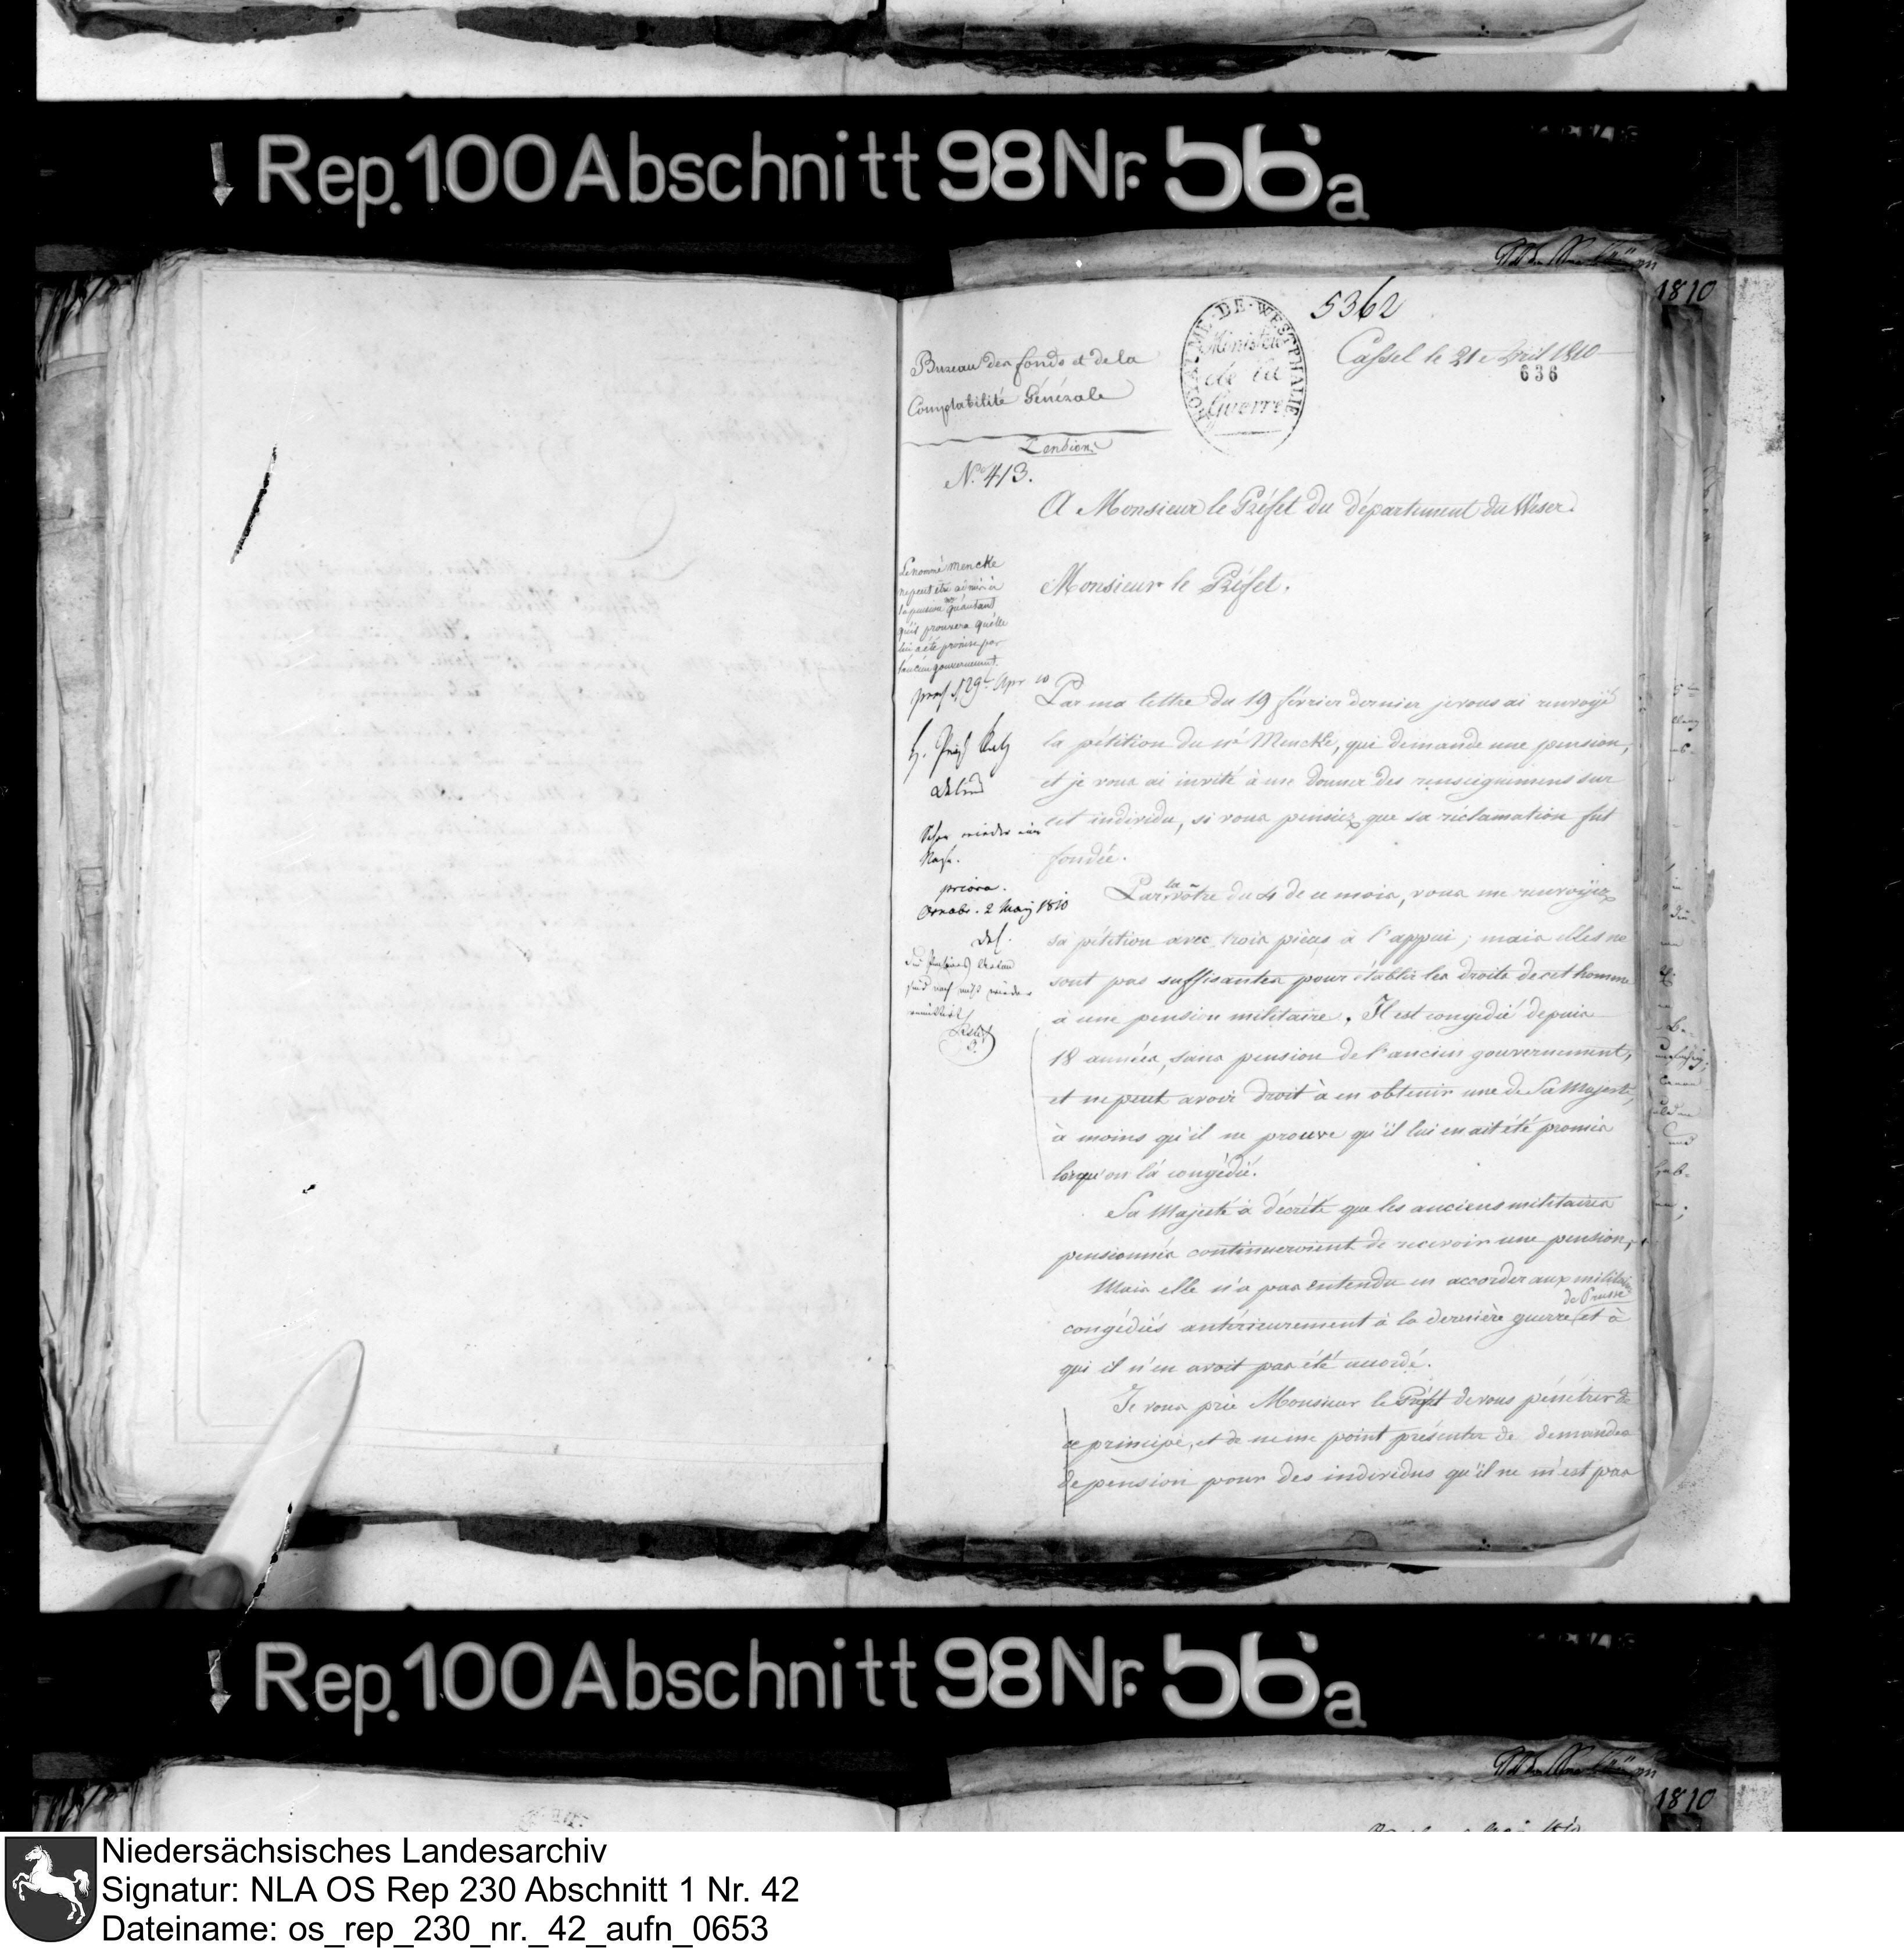 Rep. 100 Abschnitt 98 Nr. 56a
1810
5362
ROYAUME DE WESTPHALIE
Ministère
de la
Guerre
Cassel le 21 Avril 1810
636
Bureau des fonds et de la
Comptabilité Générale
Pensions
N.o 413.
A Monsieur le Préfet du département du Weser.
Monsieur le Préfet.
Le nommé Mencke
ne peut être admis à
la pension qu'autant
qu'il prouvera qu'elle
lui a été promise par
l'ancien gouvernement.
29 Apr 10
priora.
Osnabr. 2 May 1810
Par ma lettre du 19 février dernier je vous ai renvoyé
la pétition du né Mencke, qui demande une pension,
et je vous ai invité à me donner des renseignemens sur
cet individu, si vous pensiez que sa réclamation fut
fondée.
Par la vôtre du 4 de ce mois, vous me renvoyez
sa pétition avec trois pièces à l'appui; mais elles ne
sont pas suffisantes pour établir les droits de cet homme
à une pension militaire. Il est congédié depuis
18 années, sans pension de l'ancien gouvernement,
et ne peut avoir droit à en obtenir une de Sa Majesté,
à moins qu'il ne prouve qu'il lui en ait été promis
lorsqu'on l'a congédié.
Sa Majesté à décrété que les anciens militaires
pensionnés continueroient de recevoir une pension,
Mais elle n'a pas entendu en accorder aux militaires
congédiés antérieurement à la dernière guerre de Prusse et à
qui il n'en avoit pas été accordé.
Je vous prie Monsieur le Préfet de vous pénétrer de
ce principe, et de ne me point présenter de demandes
de pension pour des individus qu'il ne m'est pas
Rep. 100 Abschnitt 98 Nr. 56a
1810
Niedersächsisches Landesarchiv
Signatur: NLA OS Rep 230 Abschnitt 1 Nr. 42
Dateiname: os_rep_230_nr._42_aufn_0653